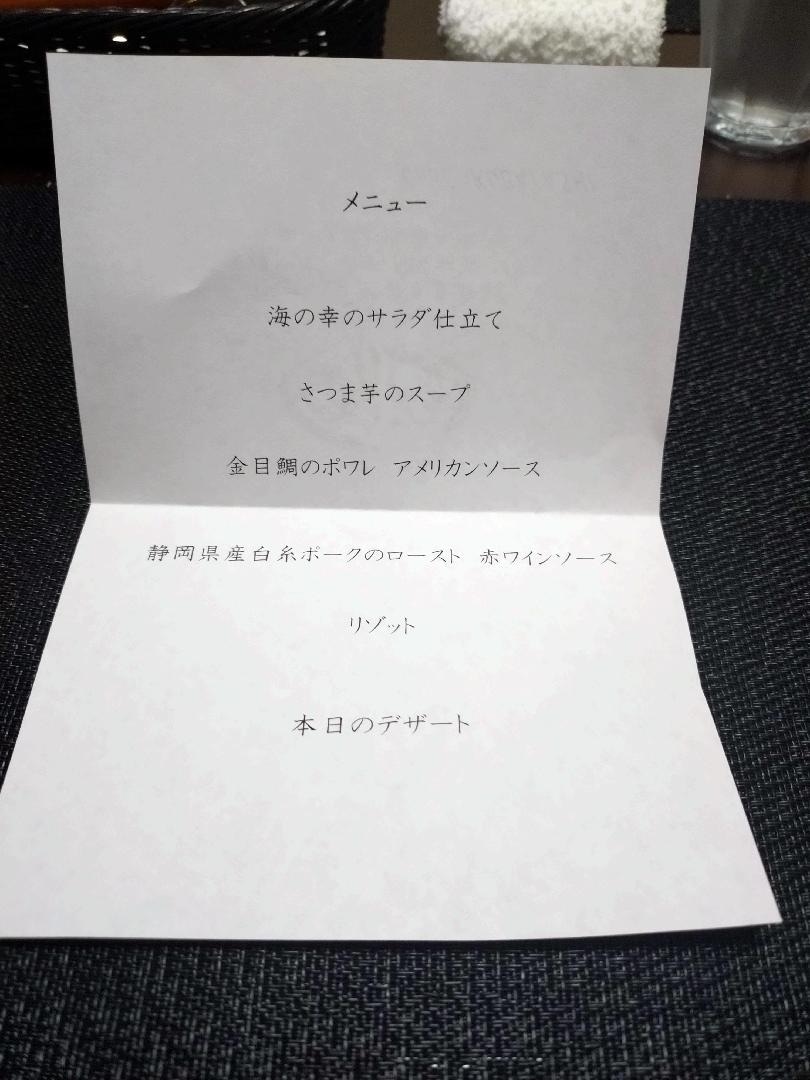 メニュー
海の幸のサラダ仕立て
さつま芋のスープ
金目鯛のポワレ　アメリカンソース
静岡県産白糸ポークのロースト　赤ワインソース
リゾット
本日のデザート